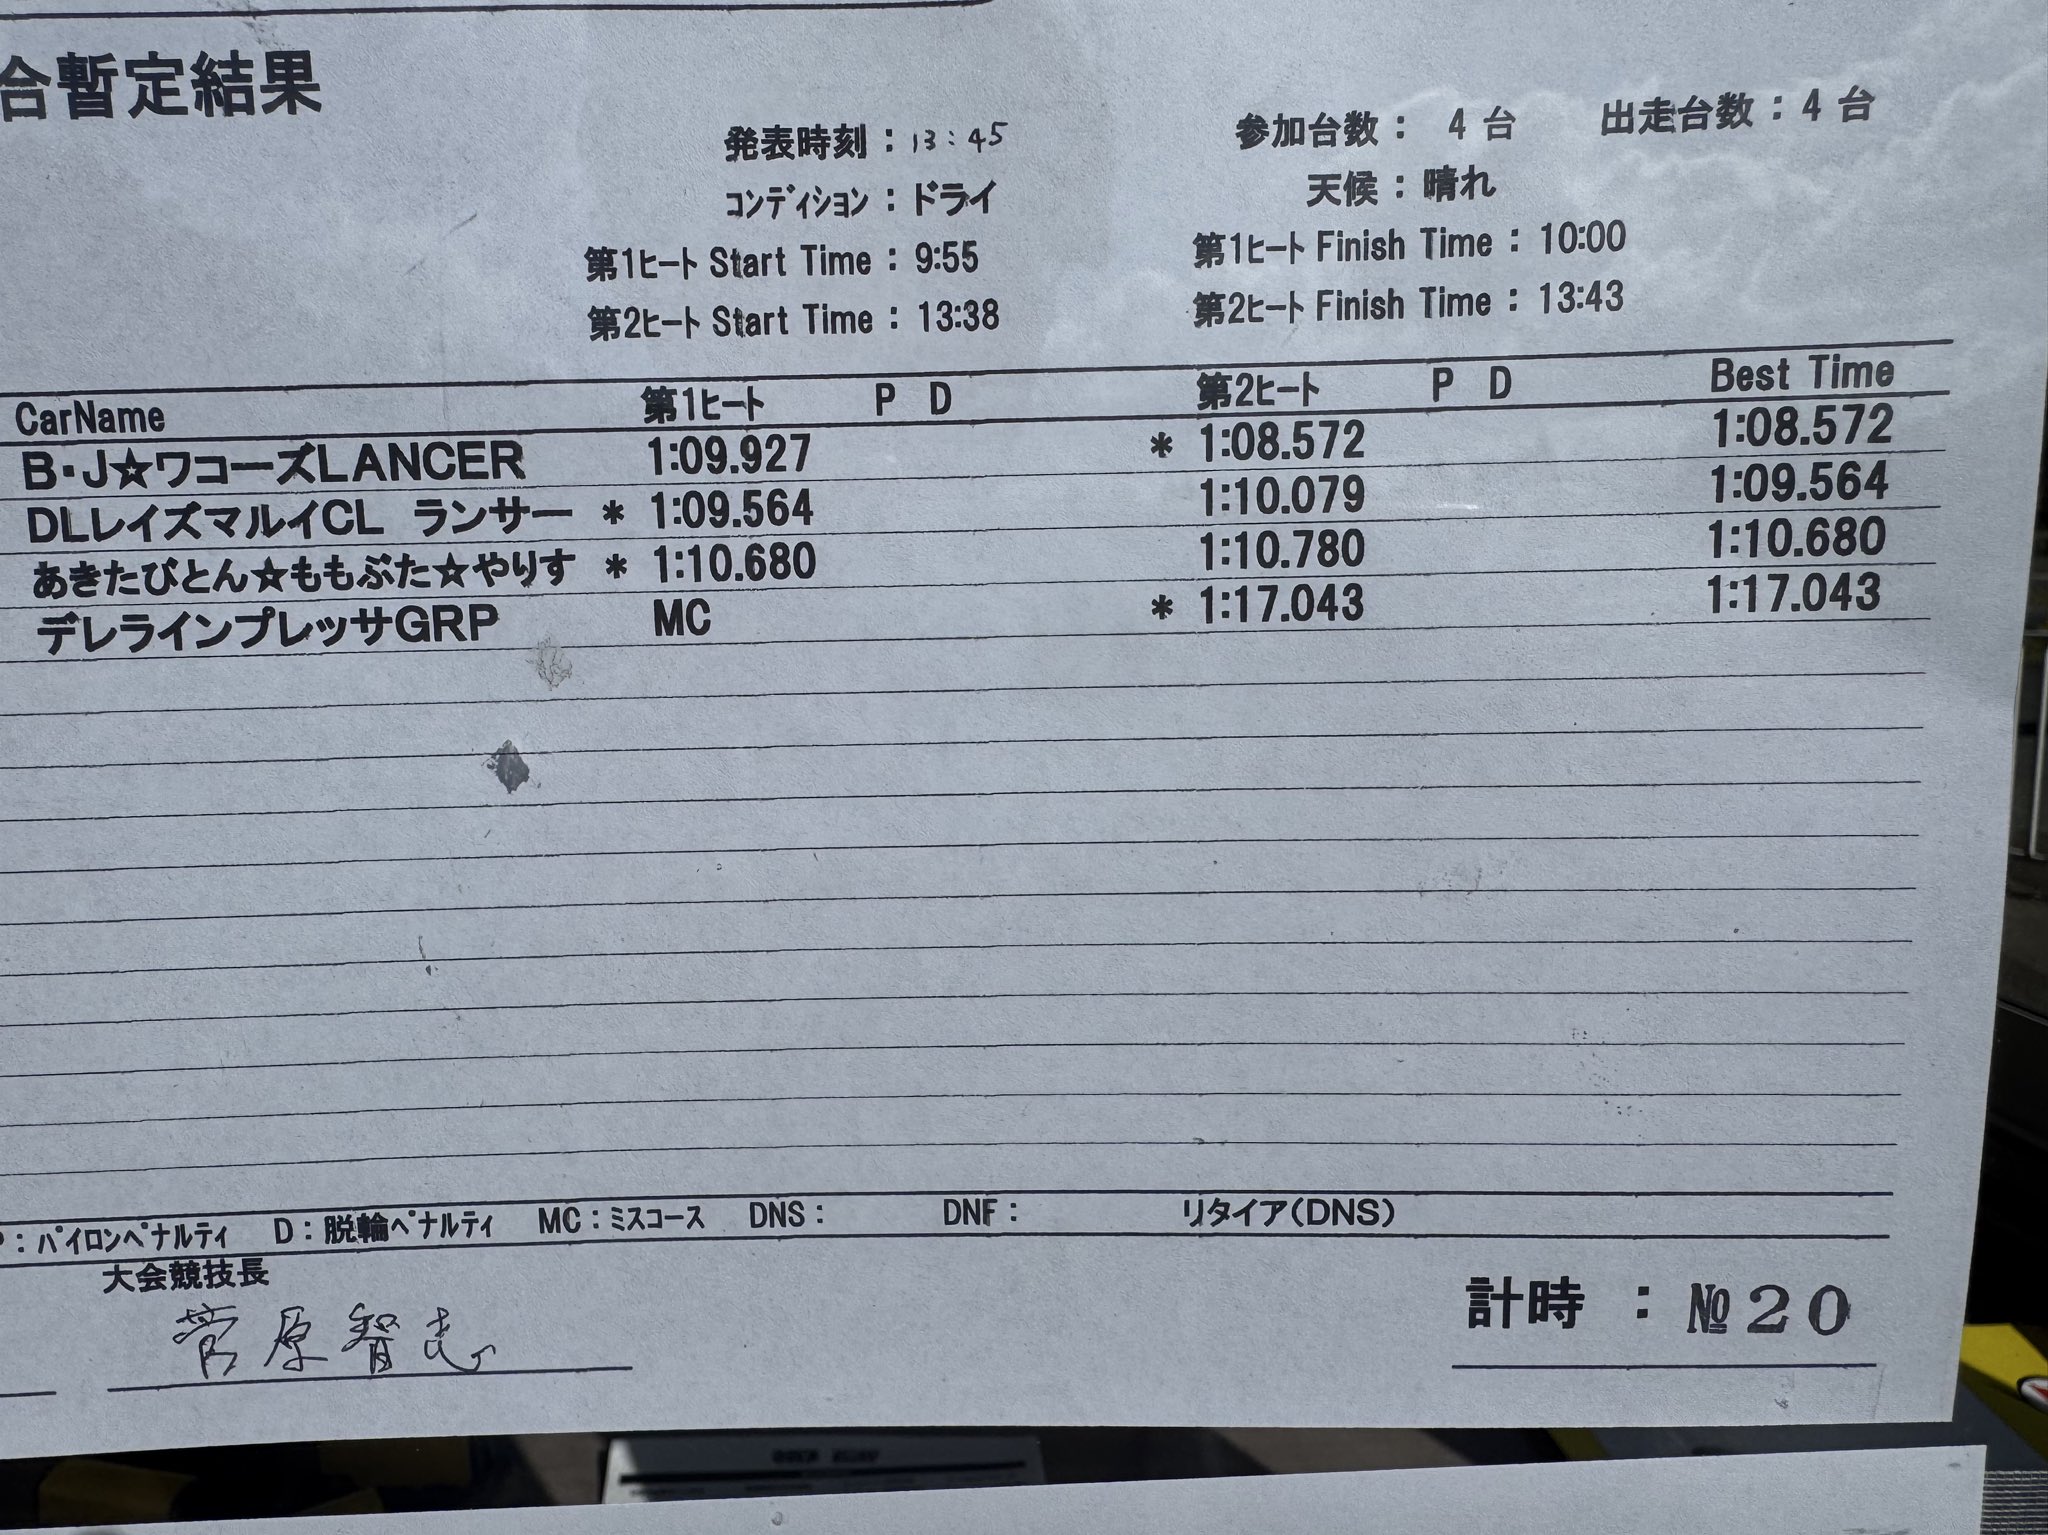 合暫定結果
発表時刻：13:45
参加台数： 4 台 出走台数：4 台
コンディション：ドライ
天候：晴れ
第1ヒート Start Time：9:55
第1ヒート Finish Time：10:00
第2ヒート Start Time：13:38
第2ヒート Finish Time：13:43
CarName 第1ヒート P D 第2ヒート P D Best Time
B・J☆ワコーズLANCER 1:09.927 * 1:08.572 1:08.572
DLレイズマルイCL ランサー * 1:09.564 1:10.079 1:09.564
あきたびとん☆ももぶた☆やりす * 1:10.680 1:10.780 1:10.680
デレラインプレッサGRP MC * 1:17.043 1:17.043
P：パイロンペナルティ D：脱輪ペナルティ MC：ミスコース DNS： DNF： リタイア(DNS)
大会競技長
菅原智志
計時 ： №20